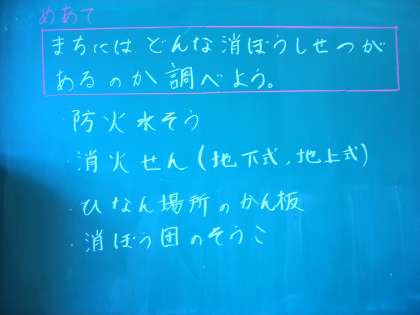 めあて
まちには どんな消ぼうしせつが
あるのか 調べよう。
・防火水そう
・消火せん(地下式、地上式)
・ひなん場所のかん板
・消ぼう団のそうこ